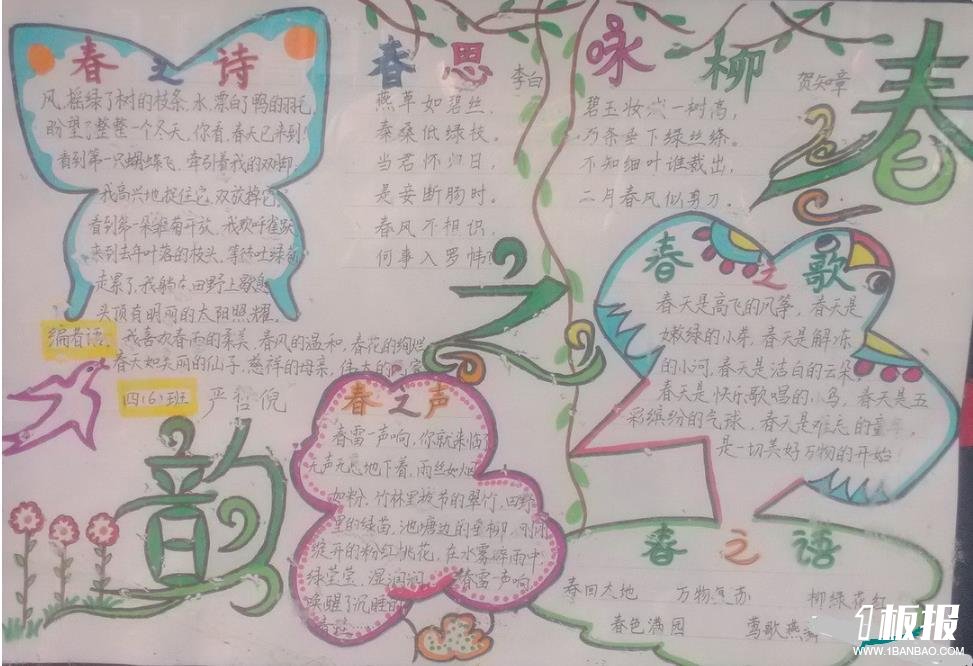 春之诗
风,摇绿了树的枝条,水,漂白了鸭的羽毛,
盼望了整整一个冬天,你看,春天已来到!
看到第一只蝴蝶飞,牵引着我的双脚;
我高兴地捉住它,又放掉它,
看到第一朵雏菊开放,我欢呼雀跃
来到去年叶落的枝头,等待吐绿
走累了,我躺在田野上歇息
头顶有明丽的太阳照耀.
编者语: 我喜欢春雨的柔美,春风的温和,春花的绚烂
春天如美丽的仙子,慈祥的母亲,伟大的
四(6)班 严哲倪
春思 李白
燕草如碧丝,
秦桑低绿枝。
当君怀归日,
是妾断肠时。
春风不相识,
何事入罗帏
咏柳 贺知章
碧玉妆成一树高,
万条垂下绿丝绦。
不知细叶谁裁出,
二月春风似剪刀。
春
之
韵
春之歌
春天是高飞的风筝,春天是
嫩绿的小草,春天是解冻
的小河,春天是洁白的云朵,
春天是快乐歌唱的小鸟,春天是五
彩缤纷的气球,春天是难忘的童
是一切美好万物的开始!
春之声
春雷一声响,你就来临
无声无息地下着,雨丝如烟
如粉.竹林里拔节的翠竹,田野
里的绿苗,池塘边的垂柳,刚刚
绽开的粉红桃花,在水雾碎雨中
绿莹莹,湿润润, 春雷一声响
唤醒了沉睡的
春之语
春回大地 万物复苏 柳绿花红
春色满园 莺歌燕舞
1板报
WWW.1BANBAO.COM